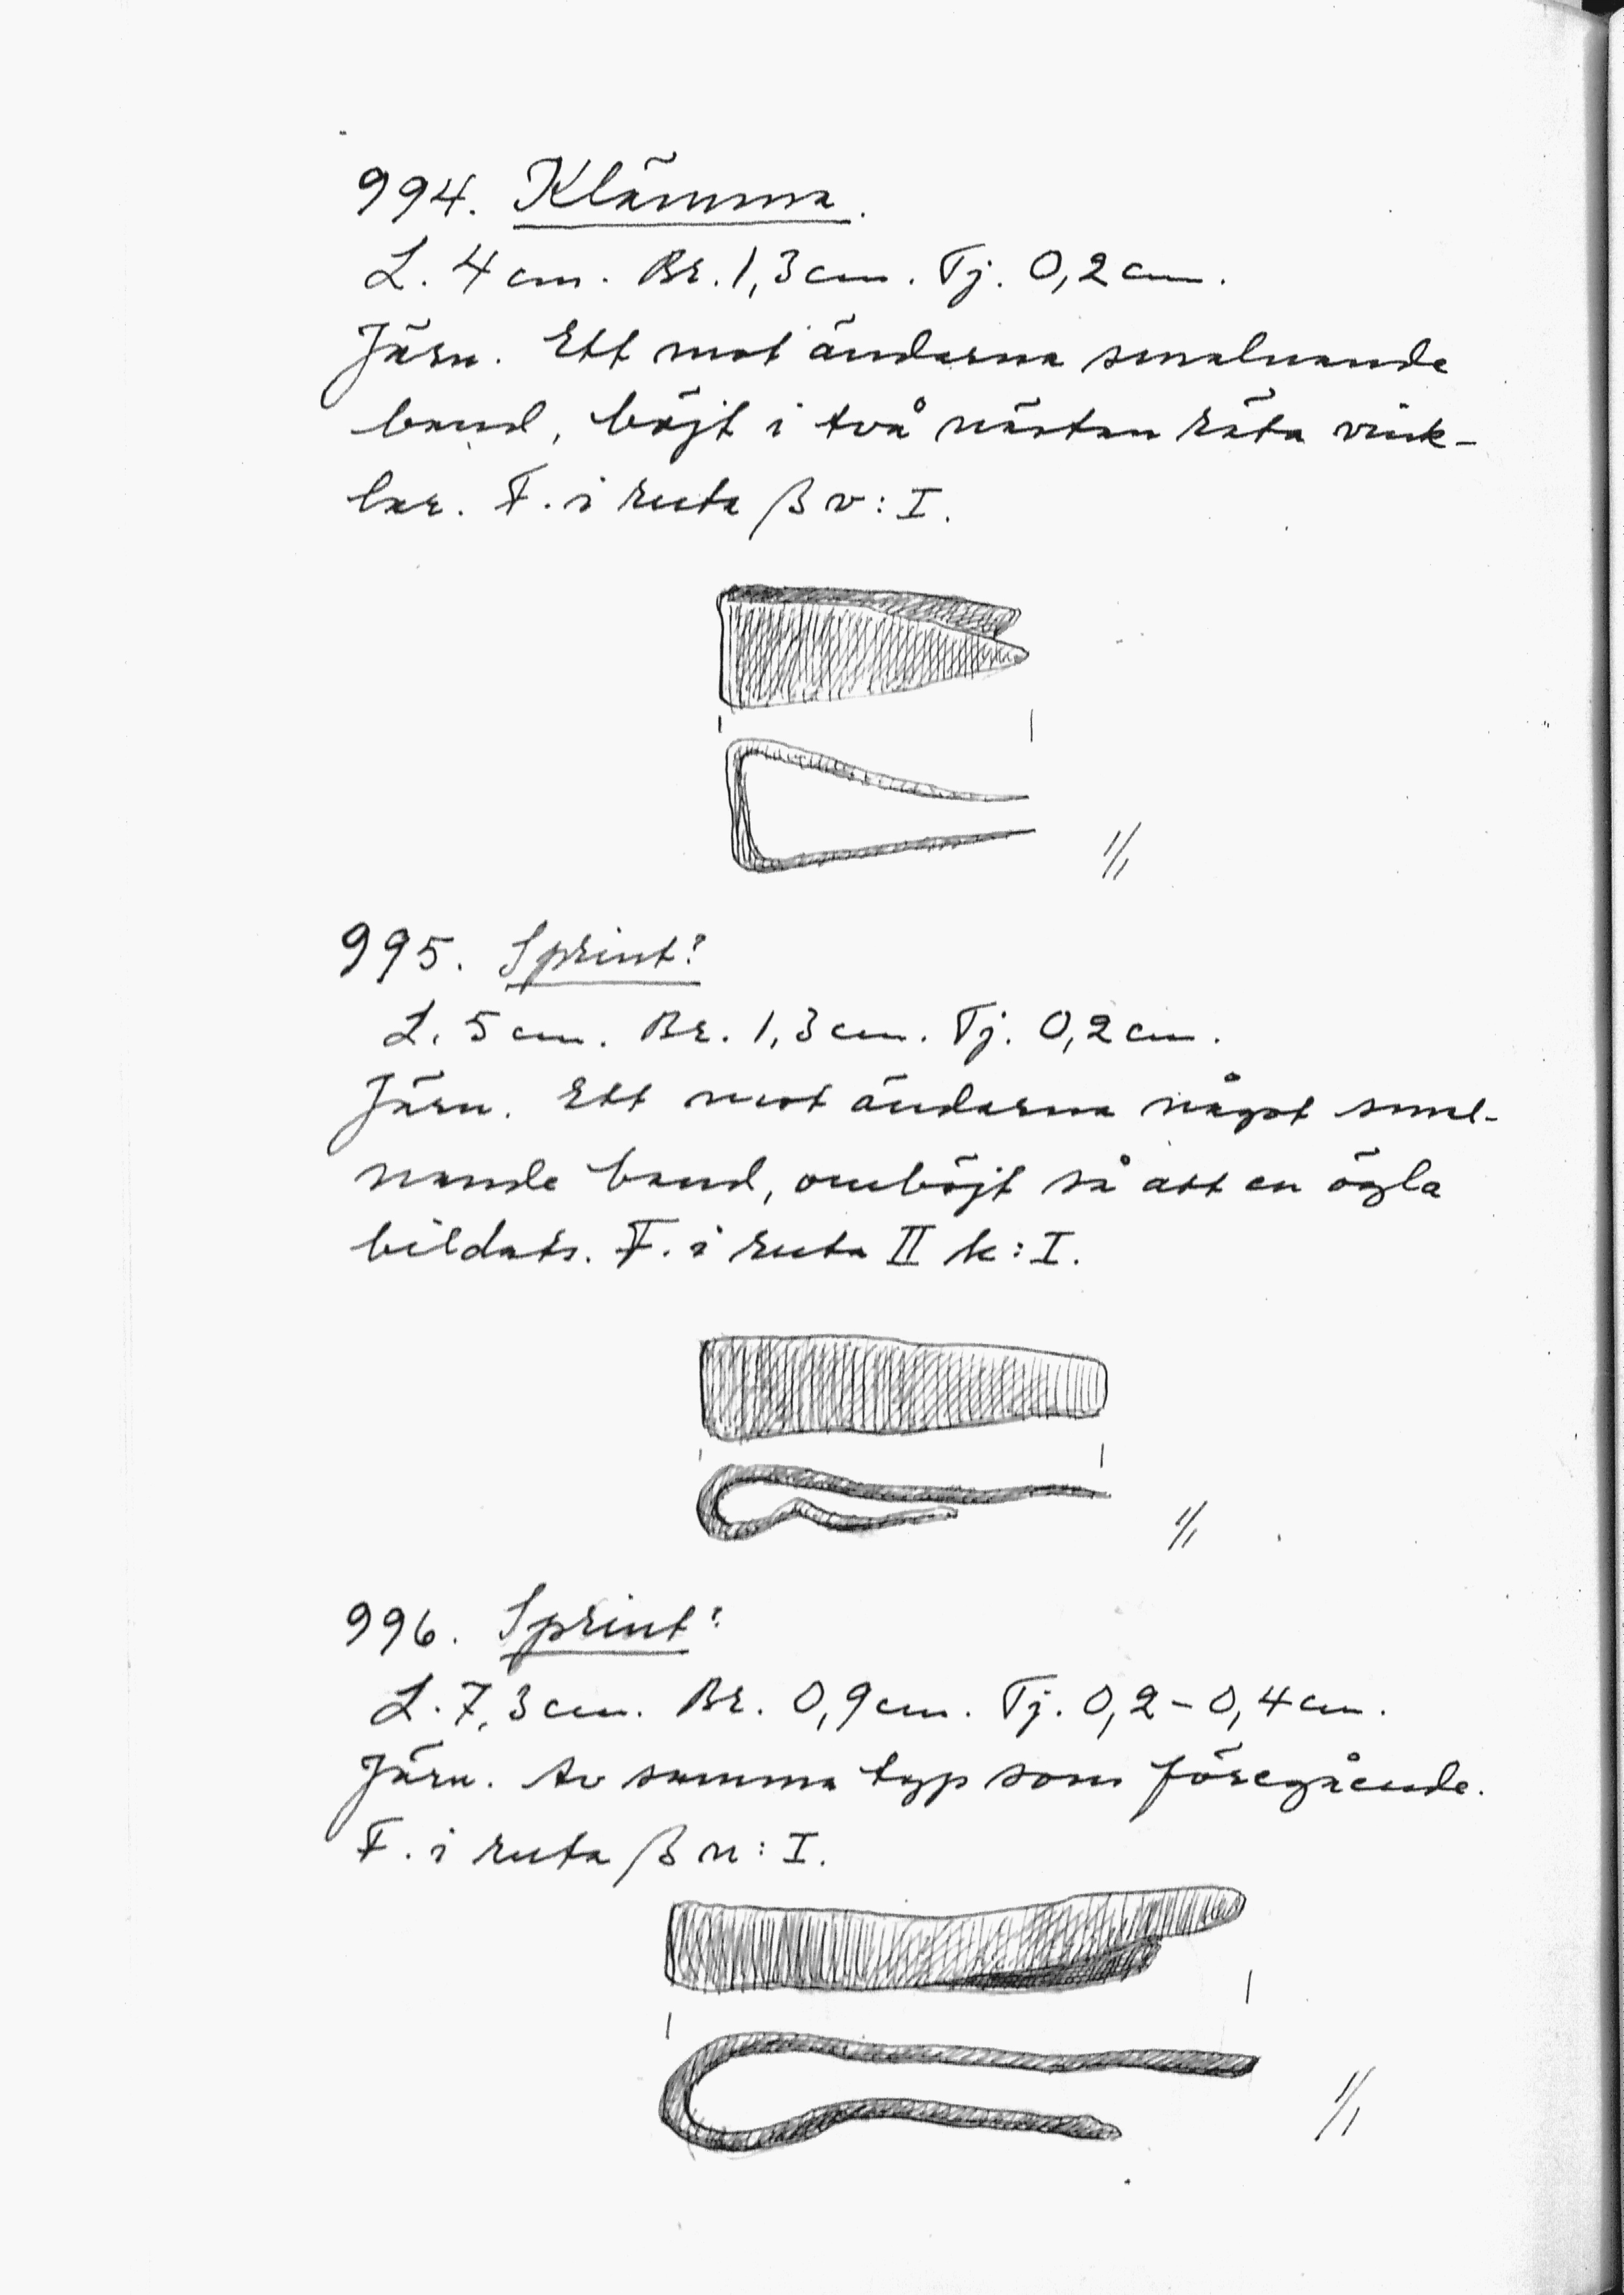 994. Klämma.
L. 4 cm. Br. 1,3 cm. Tj. 0,2 cm.
Järn. Ett mot ändarna smalnande
band, böjt i två nästan räta vink-
lar. F. i ruta β v: I.
1/1
995. Sprint?
L. 5 cm. Br. 1,3 cm. Tj. 0,2 cm.
Järn. Ett mot ändarna något smal-
nande band, omböjt så att en ögla
bildats. F. i ruta II k: I.
1/1
996. Sprint?
L. 7,3 cm. Br. 0,9 cm. Tj. 0,2-0,4 cm.
Järn. Av samma typ som föregående.
F. i ruta β n: I.
1/1